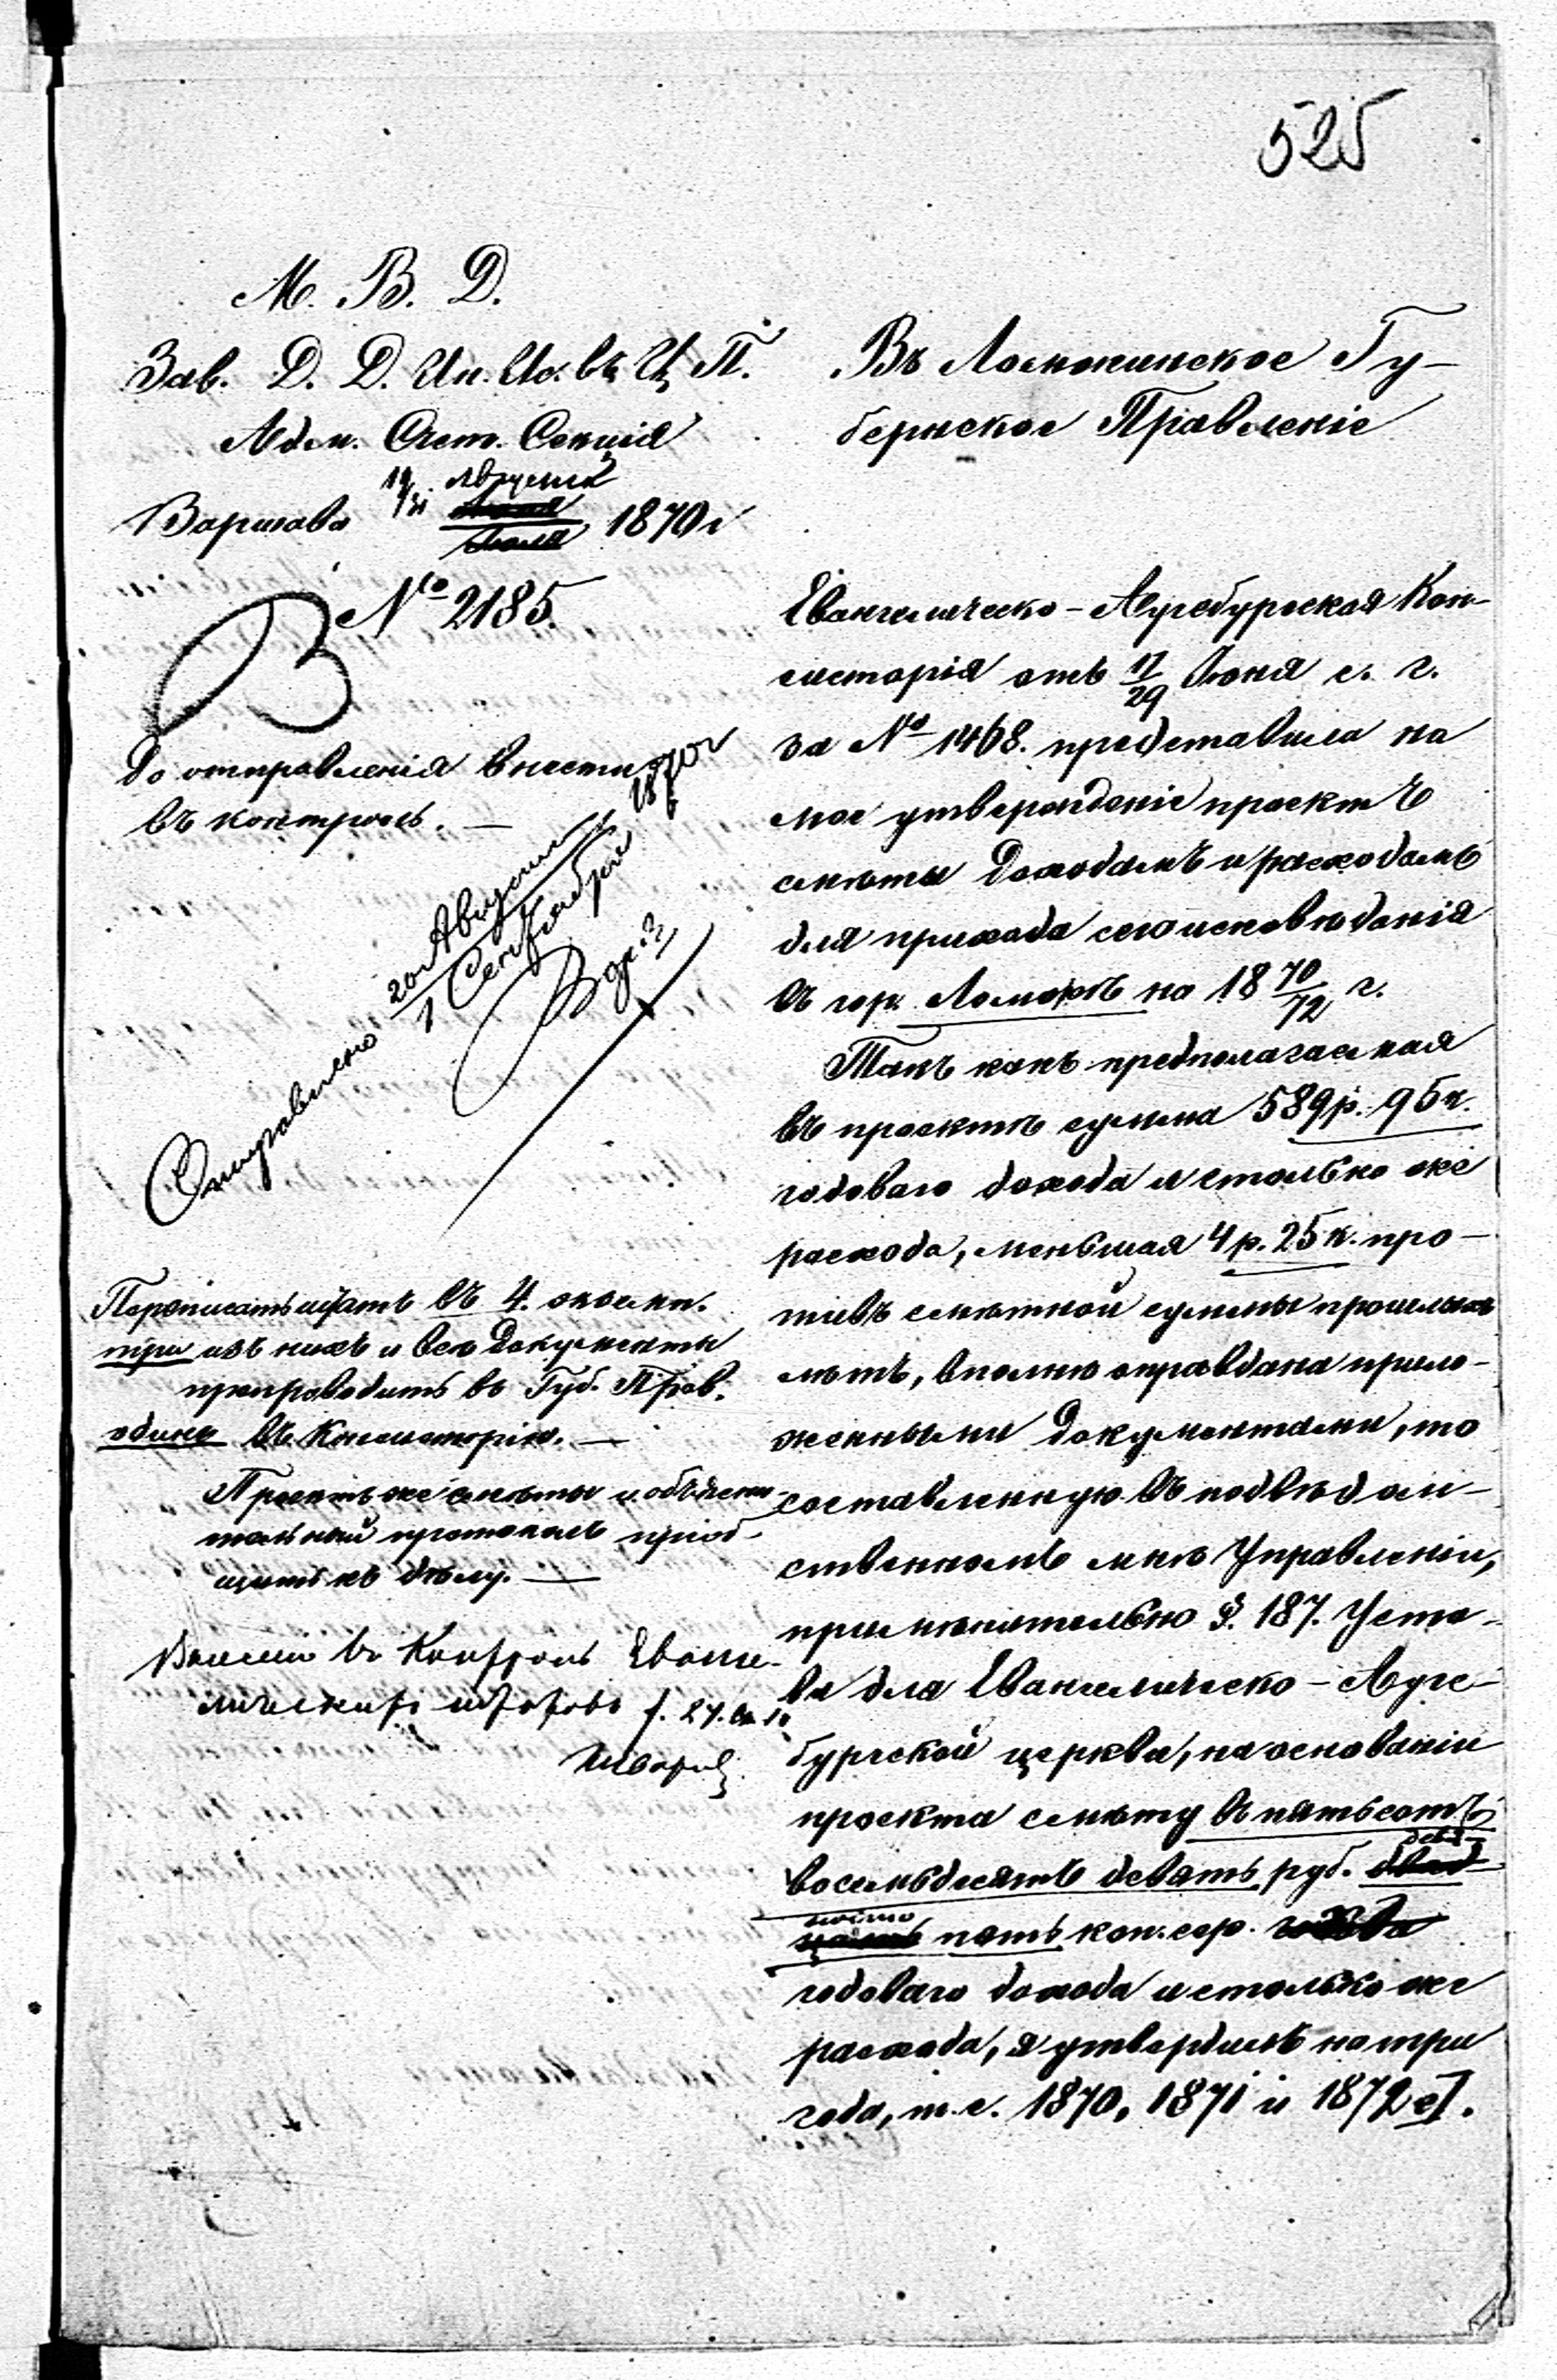 525
М. В. Д.
Зав. Д. Д. Ин. Ис. въ Ц. П.
Адм. Счет. Секція
19/31 Августа
Варшава 1870 г
№ 2185.
До отправленія внести
въ контроль. —
Отправлено 20 Августа / 1 Сентября 1870 г
Переписать штатъ въ 4. экземп.
три изъ нихъ и всѣ документы
препроводить въ Губ. Прав.
одинъ въ Консисторію. —
Проектъ же смѣты и объясни-
тельный протоколъ пріоб-
щить къ дѣлу. —
Внесено въ Контроль Еванге-
лическихъ штатовъ f. 27.
Въ Ломжинское Гу-
бернское Правленіе
Евангелическо-Аугсбургская Кон-
систорія отъ 17/29 Іюня с. г.
за № 1468. представила на
мое утвержденіе проектъ
смѣты доходамъ и расходамъ
для прихода сего исповѣданія
въ гор. Ломжѣ на 18 70/72 г.
Такъ какъ предполагаемая
въ проектѣ сумма 589 р. 95 к.
годоваго дохода и столько же
расхода, меньшая 4 р. 25 к. про-
тивъ смѣтной суммы прошлыхъ
лѣтъ, вполнѣ оправдана прило-
женными документами, то
составленную въ подвѣдом-
ственномъ мнѣ Управленіи,
примѣнительно §. 187. Уста-
ва для Евангелическо-Аугс-
бургской церкви, на основаніи
проекта смѣту въ пятьсотъ
восемьдесятъ девять руб. двад девя-
цать носто пять коп. сер.
годоваго дохода и столько же
расхода, я утвердилъ на три
года, т. е. 1870, 1871 и 1872 г.